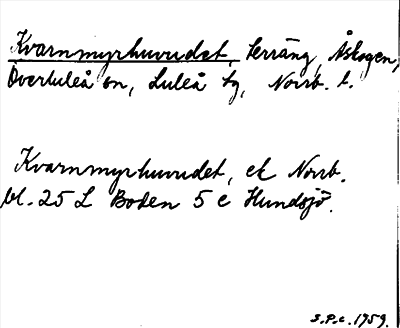 Kvarnmyrhuvudet, terräng, Åskogen,
Överluleå sn, Luleå tg, Norrb. l.
Kvarnmyrhuvudet, ek Norrb.
bl. 25 L Boden 5 c Hundsjö.
S.P.c. 1959.